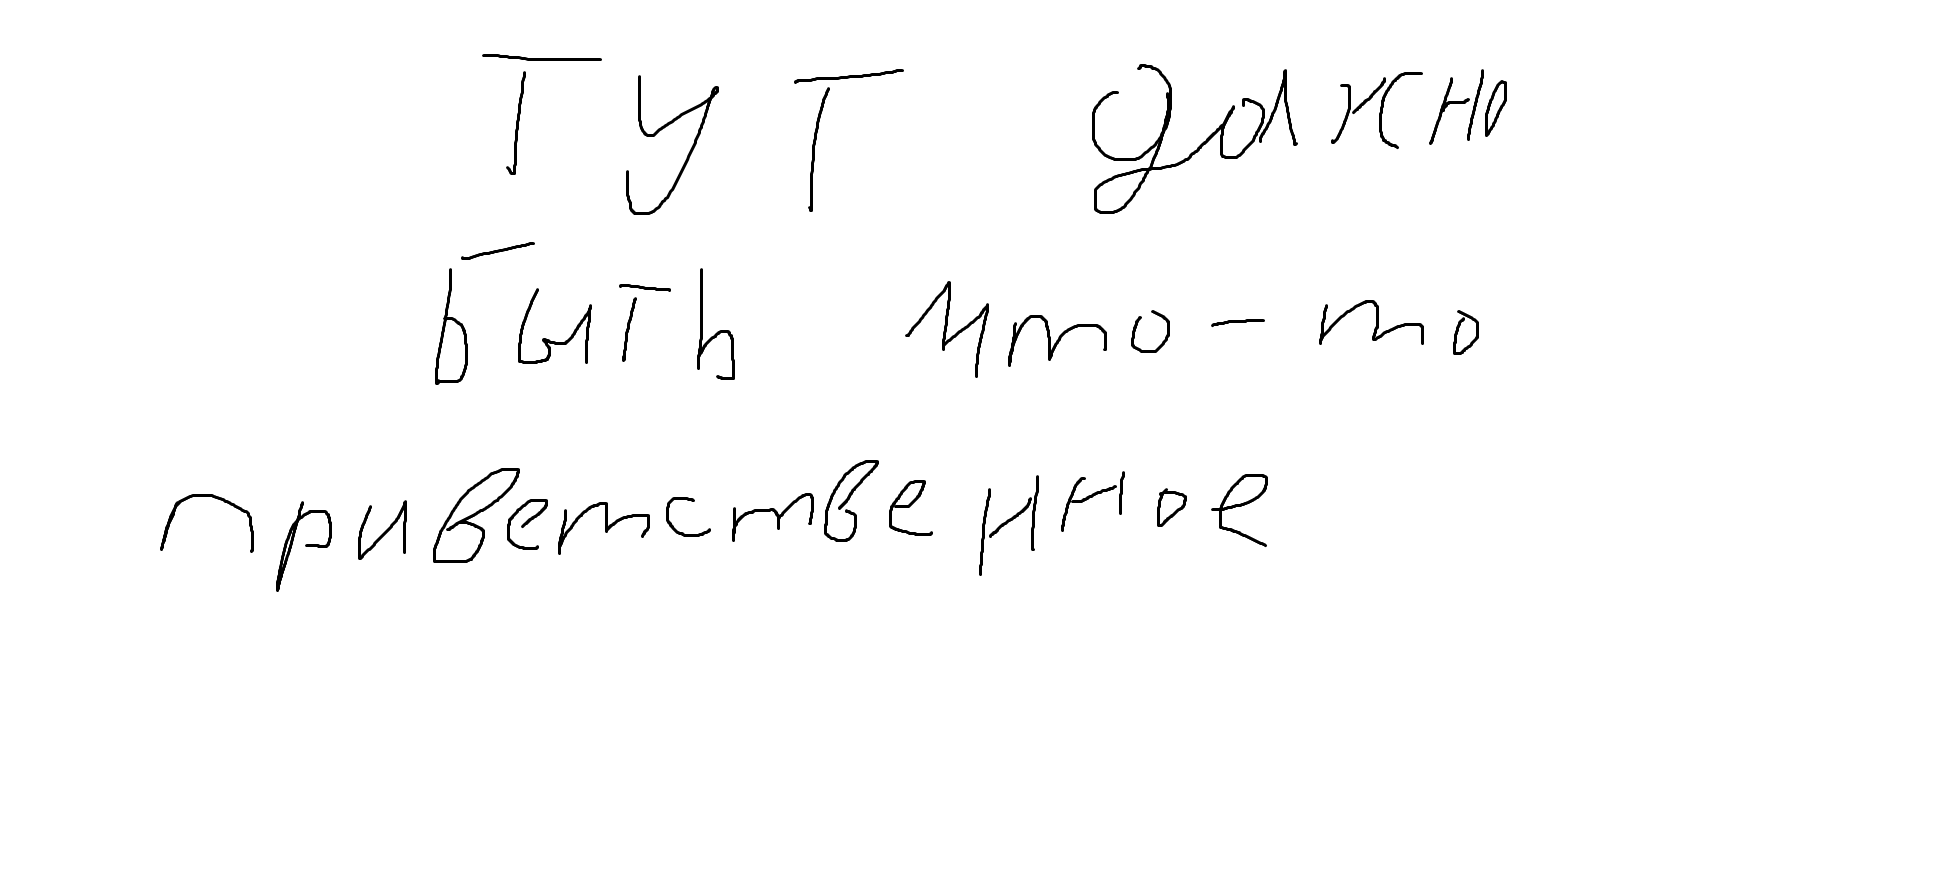 Тут должно
быть что-то
приветственное